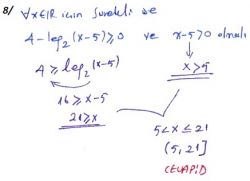 8/ ∀x∈IR için sürekli ise
4-log₂(x-5)≥0 ve x-5>0 olmalı
4≥log₂(x-5)
x>5
16≥x-5
21≥x
5<x≤21
(5,21]
CEVAP:D